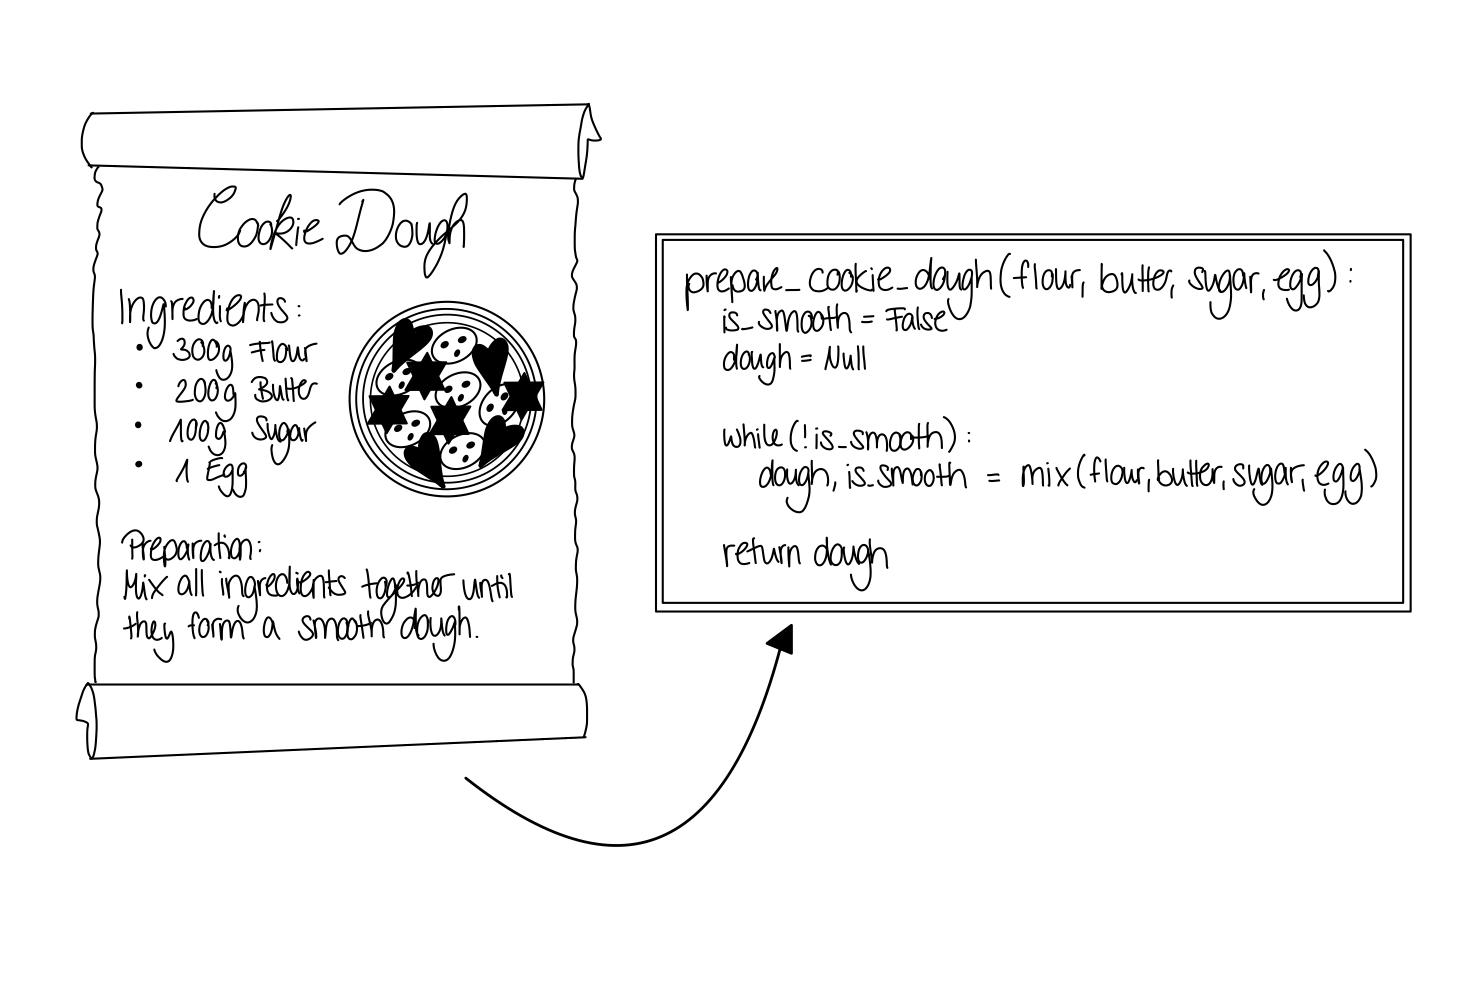 Cookie Dough
Ingredients:
• 300g Flour
• 200g Butter
• 100g Sugar
• 1 Egg
Preparation:
Mix all ingredients together until
they form a smooth dough.
prepare_cookie_dough(flour, butter, sugar, egg):
is_smooth = False
dough = Null
while(!is_smooth):
dough, is_smooth = mix(flour, butter, sugar, egg)
return dough